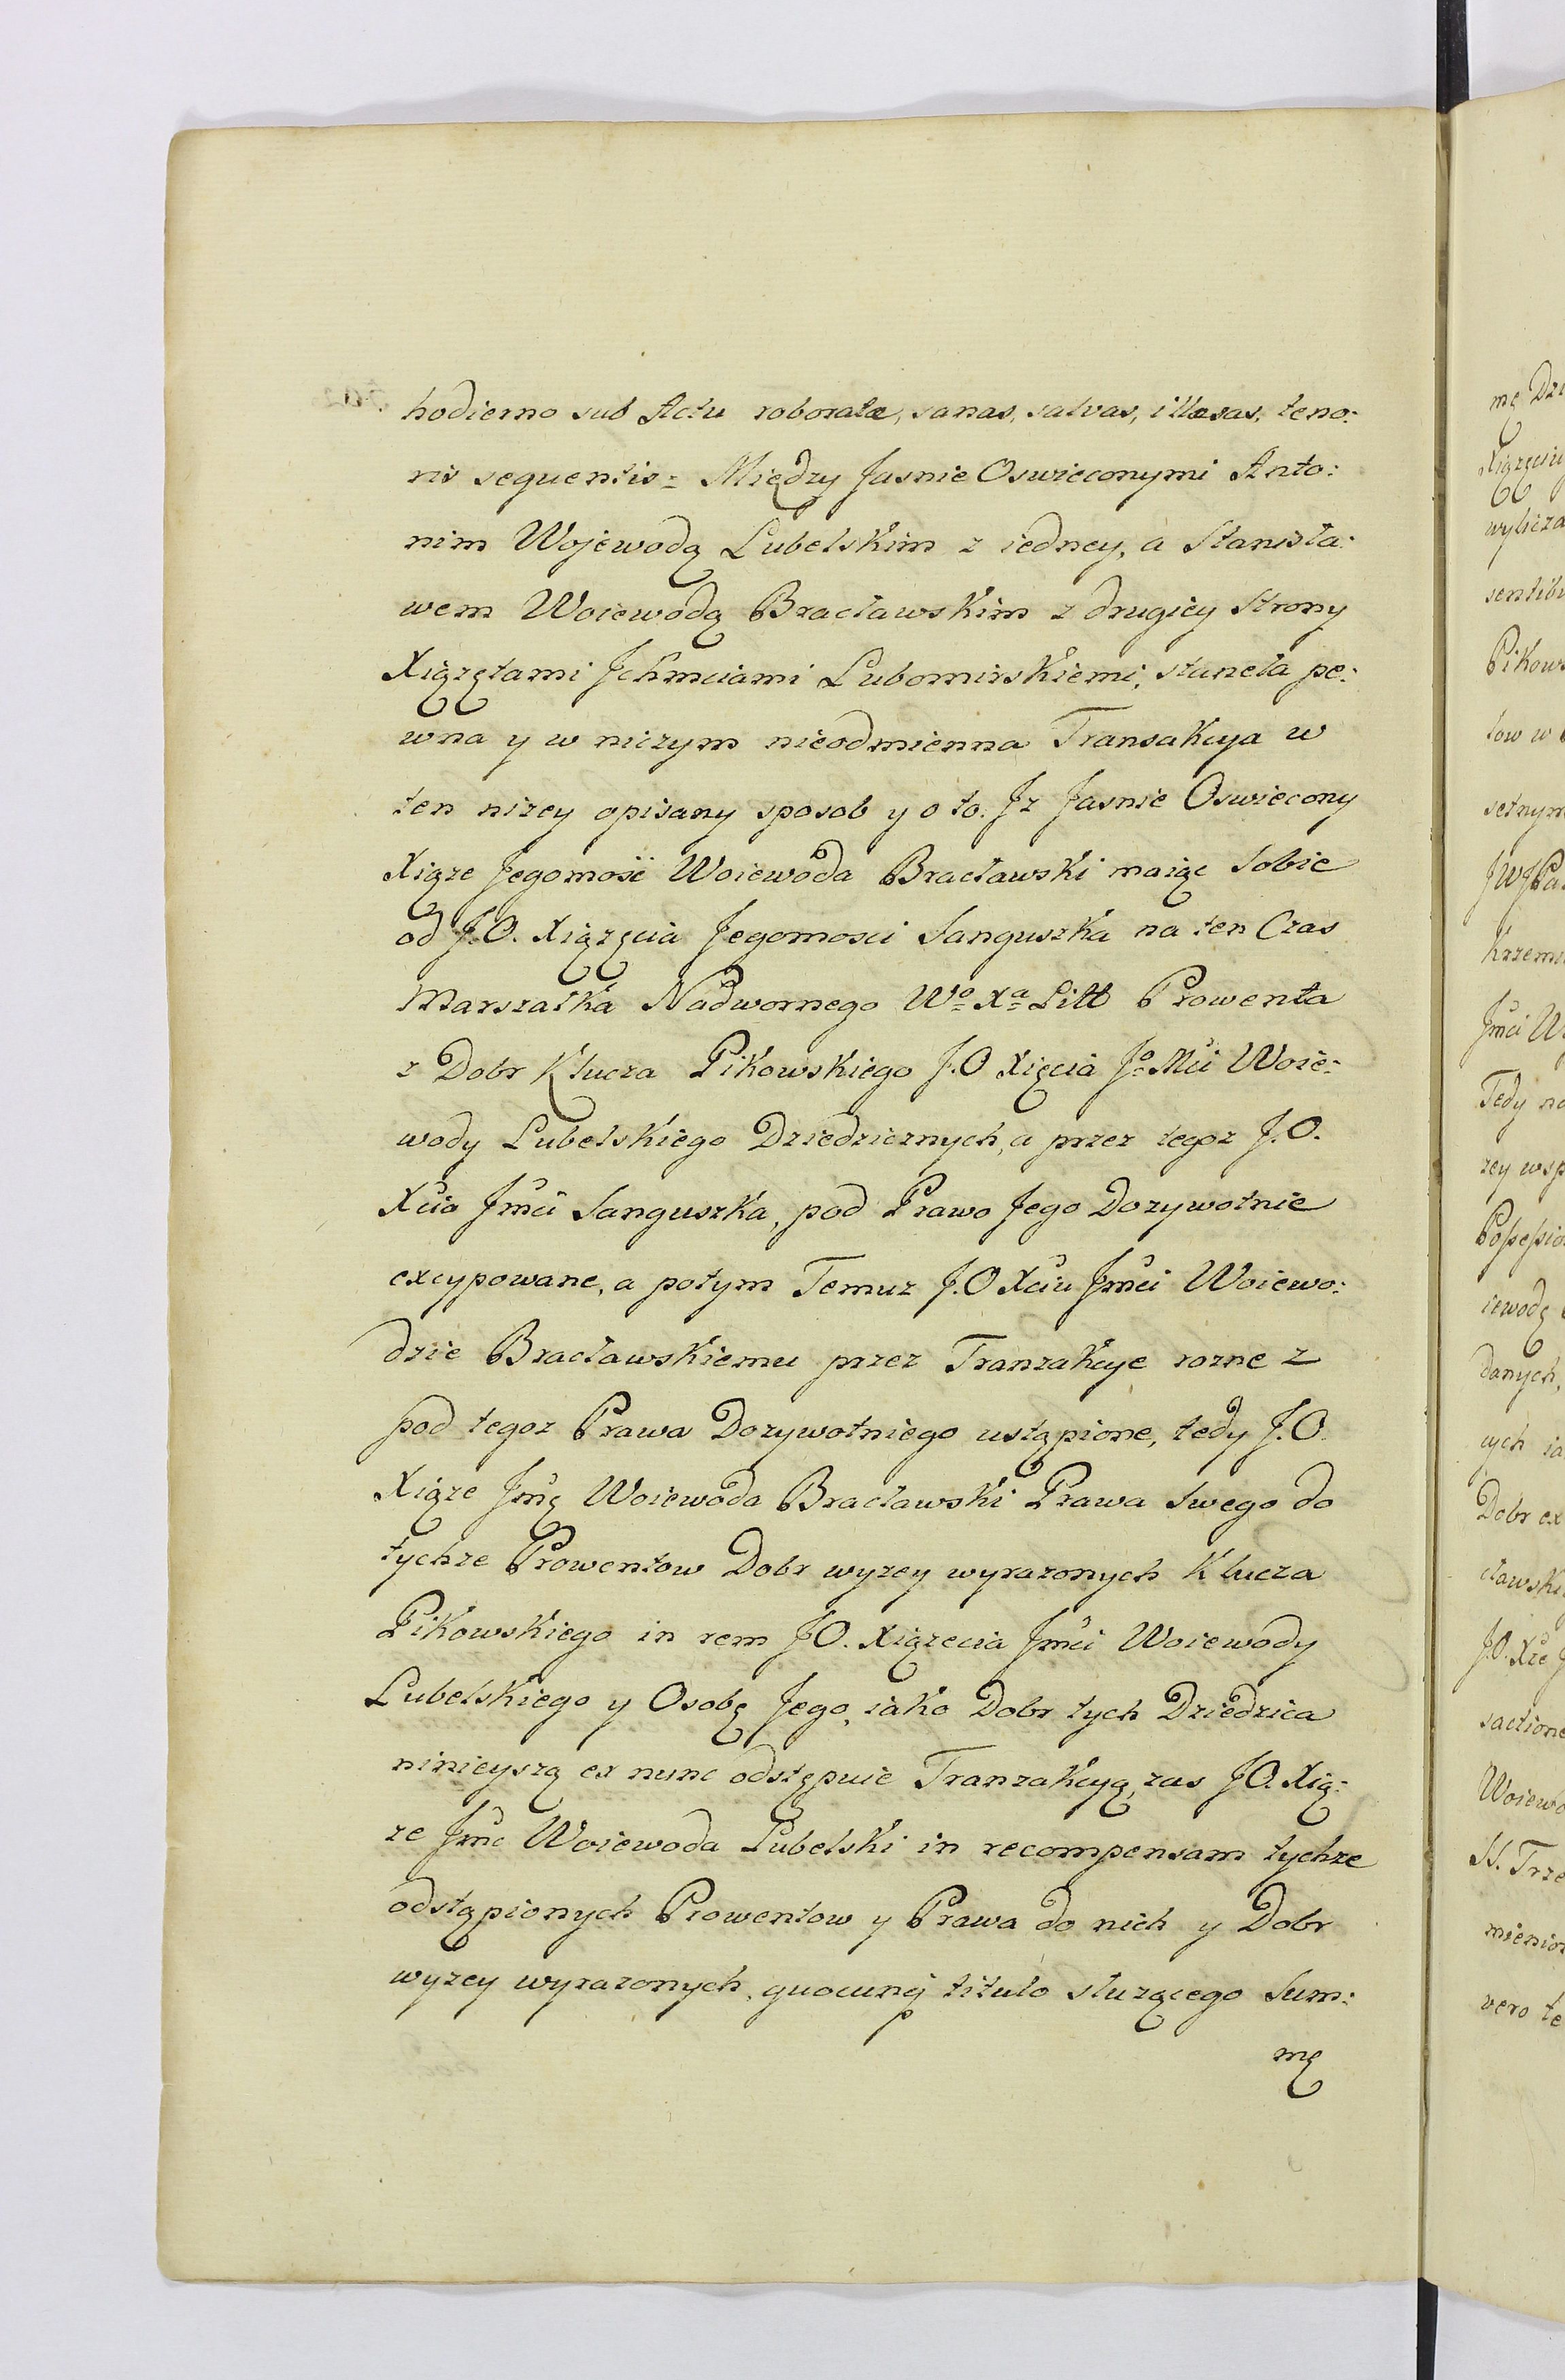 hodierno sub Actu roboratæ, sanas, salvas, illæsas, teno:
ris sequentis = Między Jasnie Oswieconymi Anto:
nim Wojewodą Lubelskim z iedney, a Stanisła:
wem Woiewodą Bracławskim z drugiey Strony
Xiązętami Jchmciami Lubomirskiemi, staneła pe:
wna y w niczym nieodmienna Transakcya w
ten nizey opisany sposob y o to. Jz Jasnie Oswiecony
Xiąze Jegomość Woiewoda Bracławski maiąc Sobie
od J.O. Xiązęcia Jegomosci Sanguszka na ten Czas
Marszałka Nadwornego Wo Xa Litt Prowenta
z Dobr Klucza Pikowskiego J.O Xięcia Jo Mci Woie:
wody Lubelskiego Dziedzicznych, a przez tegoz J.O.
Xcia Jmci Sanguszka, pod Prawo Jego Dozywotnie
excypowane, a potym Temuz J.O Xciu Jmci Woiewo:
dzie Bracławskiemu przez Tranzakcye rozne z
pod tegoz Prawa Dozywotniego ustąpione, tedy J.O.
Xiąze Jmć Woiewoda Bracławski Prawa Swego do
tychze Prowentow Dobr wyzey wyrazonych Klucza
Pikowskiego in rem JO. Xiązecia Jmci Woiewody
Lubelskiego y Osobę Jego, iako Dobr tych Dziedzica
ninieyszą ex nunc odstępuie Tranzakcyą, zas JO. Xią:
ze Jmc Woiewoda Lubelski in recompensam tychze
odstąpionych Prowentow y Prawa do nich y Dobr
wyzey wyrazonych, quocunq titulo słuzącego Sum:
mę
mę
Pikow
danych,
Dobr ex
Woiewo
vero te